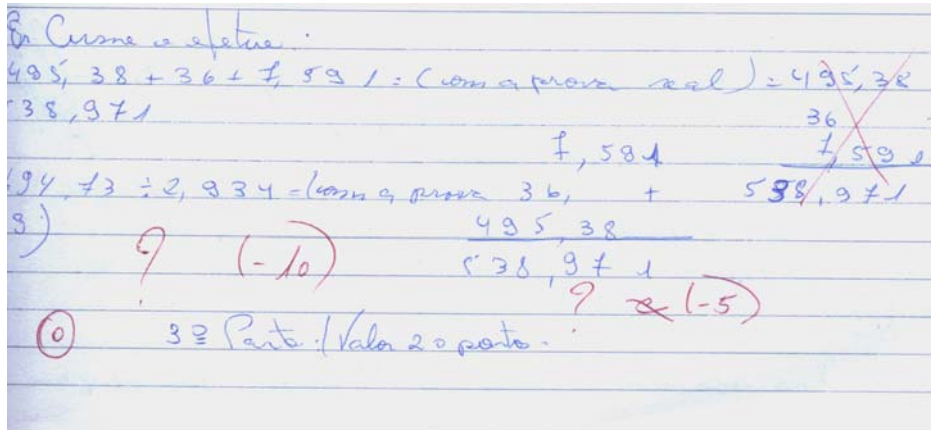 e efetue:
495,38 + 36 + 7,591 = (com a prova real) = 495,38
538,971
36
7,591
7,591
194,73 ÷ 2,934 = (com a prova 36, + 538,971
9)
495,38
538,971
? (-10)
? (-5)
0 3ª Parte: (Valor 20 ponto.